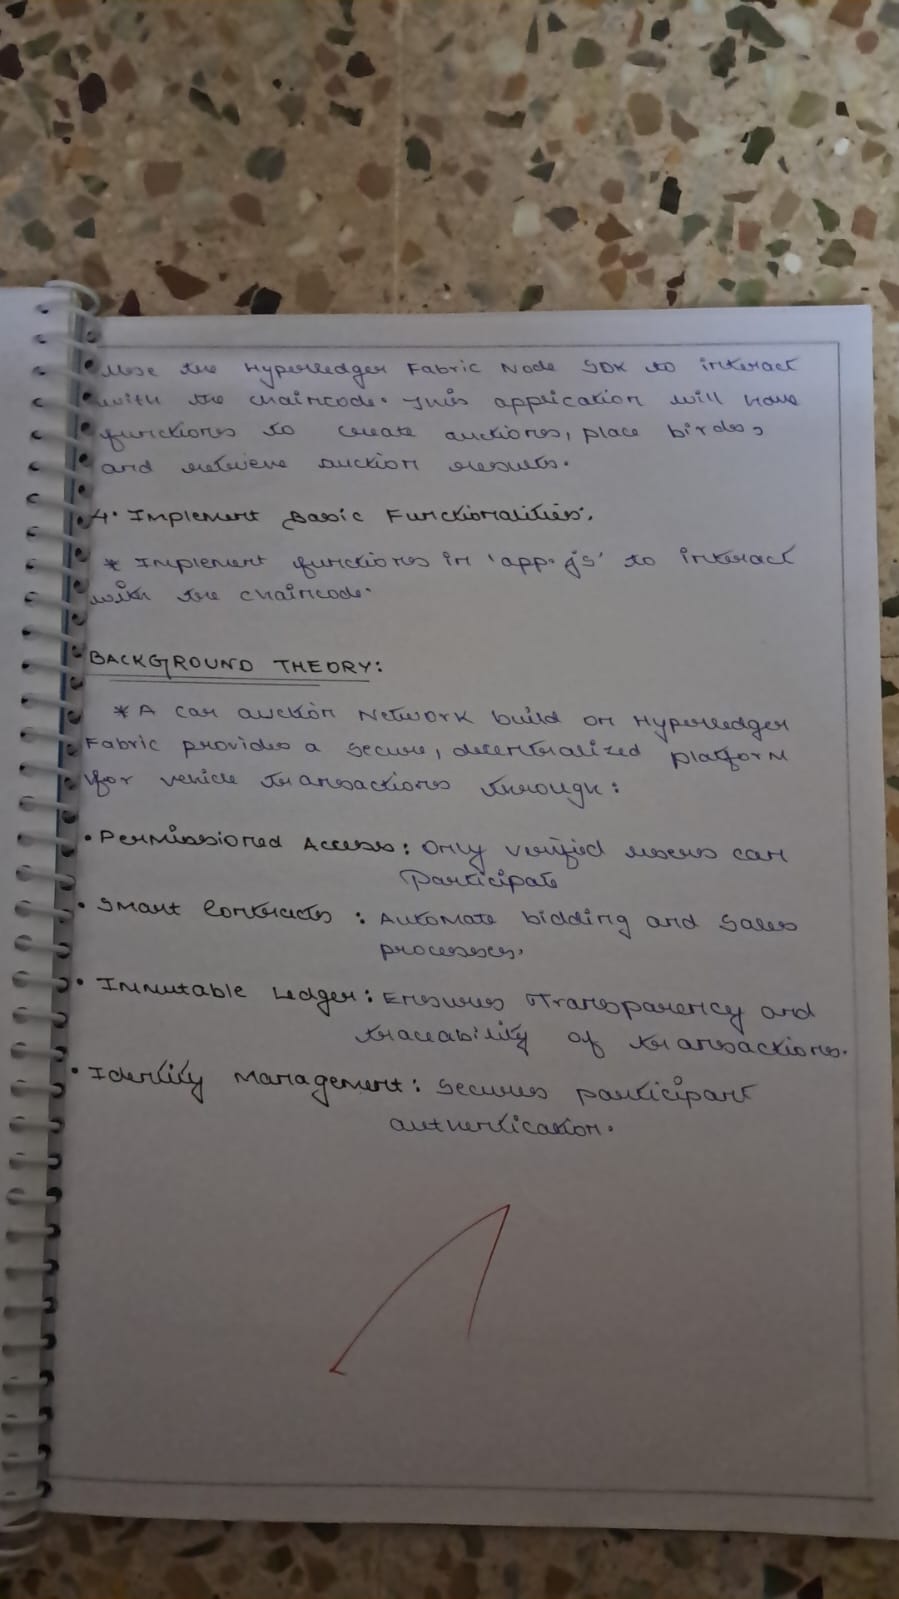 Use the Hyperledger Fabric Node SDK to interact
with the chaincode. This application will have
functions to create auctions, place birds,
and retrieve auction results.
4. Implement Basic Functionalities.
* Implement functions in 'app.js' to interact
with the chaincode.
BACKGROUND THEORY:
* A car auction Network build on Hyperledger
Fabric provides a secure, decentralized platform
for vehicle transactions through:
• Permissioned Access: Only verified users can
Participate
• Smart Contracts : Automate bidding and Sales
processes.
• Immutable Ledger: Ensures Transparency and
traceability of transactions.
• Identity Management: Secures participant
authentication.